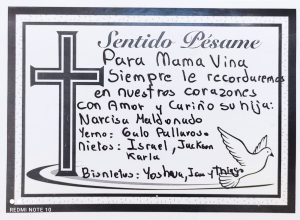 Sentido Pésame
Para Mama Vina
Siempre le recordaremos
en nuestros corazones
con Amor y Cariño su hija:
Narcisa Maldonado
Yerno: Galo Pallaroso
nietos: Israel, Jackson
Karla
Bisnietos: Yoshua, Ian y Thiago
REDMI NOTE 10